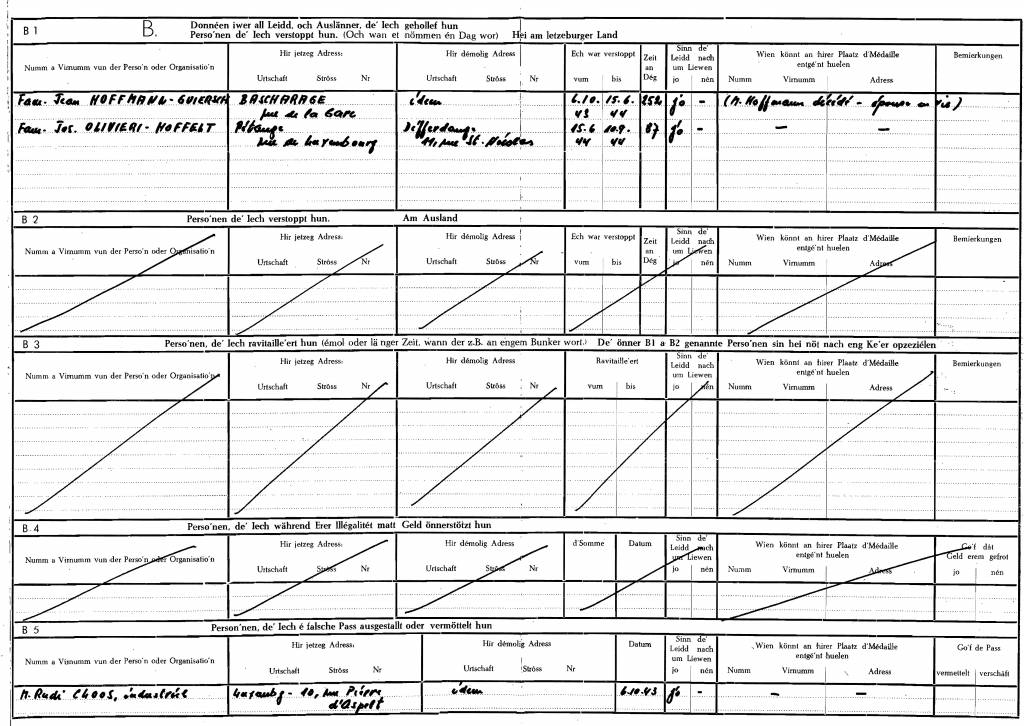 B 1
B.
Donnéen iwer all Leidd, och Auslänner, de' Iech gehollef hun
Perso'nen de' Iech verstoppt hun. (Och wan et nömmen én Dag wor) Hei am letzeburger Land
Numm a Virnumm vun der Perso'n oder Organisatio'n
Hir jetzeg Adress:
Urtschaft Ströss Nr
Hir démolig Adress
Urtschaft Ströss Nr
Ech war verstoppt
vum bis
Zeit an Dég
Sinn de' Leidd nach um Liewen
jo nén
Wien könnt an hirer Plaatz d'Médaille
entgé'nt huelen
Numm Virnumm Adress
Bemierkungen
Fam. Jean HOFFMANN-GUIERSCH BASCHARAGE idem 6.10. 15.6. 252 jo - (M. Hoffmann décédé - épouse en vie)
rue de la Gare 43 44
Fam. Jos. OLIVIERI-HOFFELT Pétange Differdange 15.6 10.9. 87 jo - — —
rue de Luxembourg 11, rue St. Nicolas 44 44
B 2
Perso'nen de' Iech verstoppt hun. Am Ausland
Numm a Virnumm vun der Perso'n oder Organisatio'n
Hir jetzeg Adress:
Urtschaft Ströss Nr
Hir démolig Adress
Urtschaft Ströss Nr
Ech war verstoppt
vum bis
Zeit an Dég
Sinn de' Leidd nach um Liewen
jo nén
Wien könnt an hirer Plaatz d'Médaille
entgé'nt huelen
Numm Virnumm Adress
Bemierkungen
B 3
Perso'nen, de' Iech ravitaille'ert hun (émol oder länger Zeit, wann der z.B. an engem Bunker wort.) De' önner B1 a B2 genannte Perso'nen sin hei nöt nach eng Ke'er opzeziélen
Numm a Virnumm vun der Perso'n oder Organisatio'n
Hir jetzeg Adress:
Urtschaft Ströss Nr
Hir démolig Adress
Urtschaft Ströss Nr
Ravitaille'ert
vum bis
Sinn de' Leidd nach um Liewen
jo nén
Wien könnt an hirer Plaatz d'Médaille
entgé'nt huelen
Numm Virnumm Adress
Bemierkungen
B 4
Perso'nen, de' Iech während Erer Illégalitét matt Geld önnerstötzt hun
Numm a Virnumm vun der Perso'n oder Organisatio'n
Hir jetzeg Adress:
Urtschaft Ströss Nr
Hir démolig Adress
Urtschaft Ströss Nr
d'Somme Datum
Sinn de' Leidd nach um Liewen
jo nén
Wien könnt an hirer Plaatz d'Médaille
entgé'nt huelen
Numm Virnumm Adress
Go'f dât
Geld erem gefrot
jo nén
B 5
Person'nen, de' Iech é falsche Pass ausgestallt oder vermöttelt hun
Numm a Virnumm vun der Perso'n oder Organisatio'n
Hir jetzeg Adress
Urtschaft Ströss Nr
Hir démolig Adress
Urtschaft Ströss Nr
Datum
Sinn de' Leidd nach um Liewen
jo nén
Wien könnt an hirer Plaatz d'Médaille
entgé'nt huelen
Numm Virnumm Adress
Go'f de Pass
vermettelt verschäft
M. Rudi CLOOS, industriel Luxembg - 10, rue Pierre idem 6.10.43 jo - — —
d'Aspelt